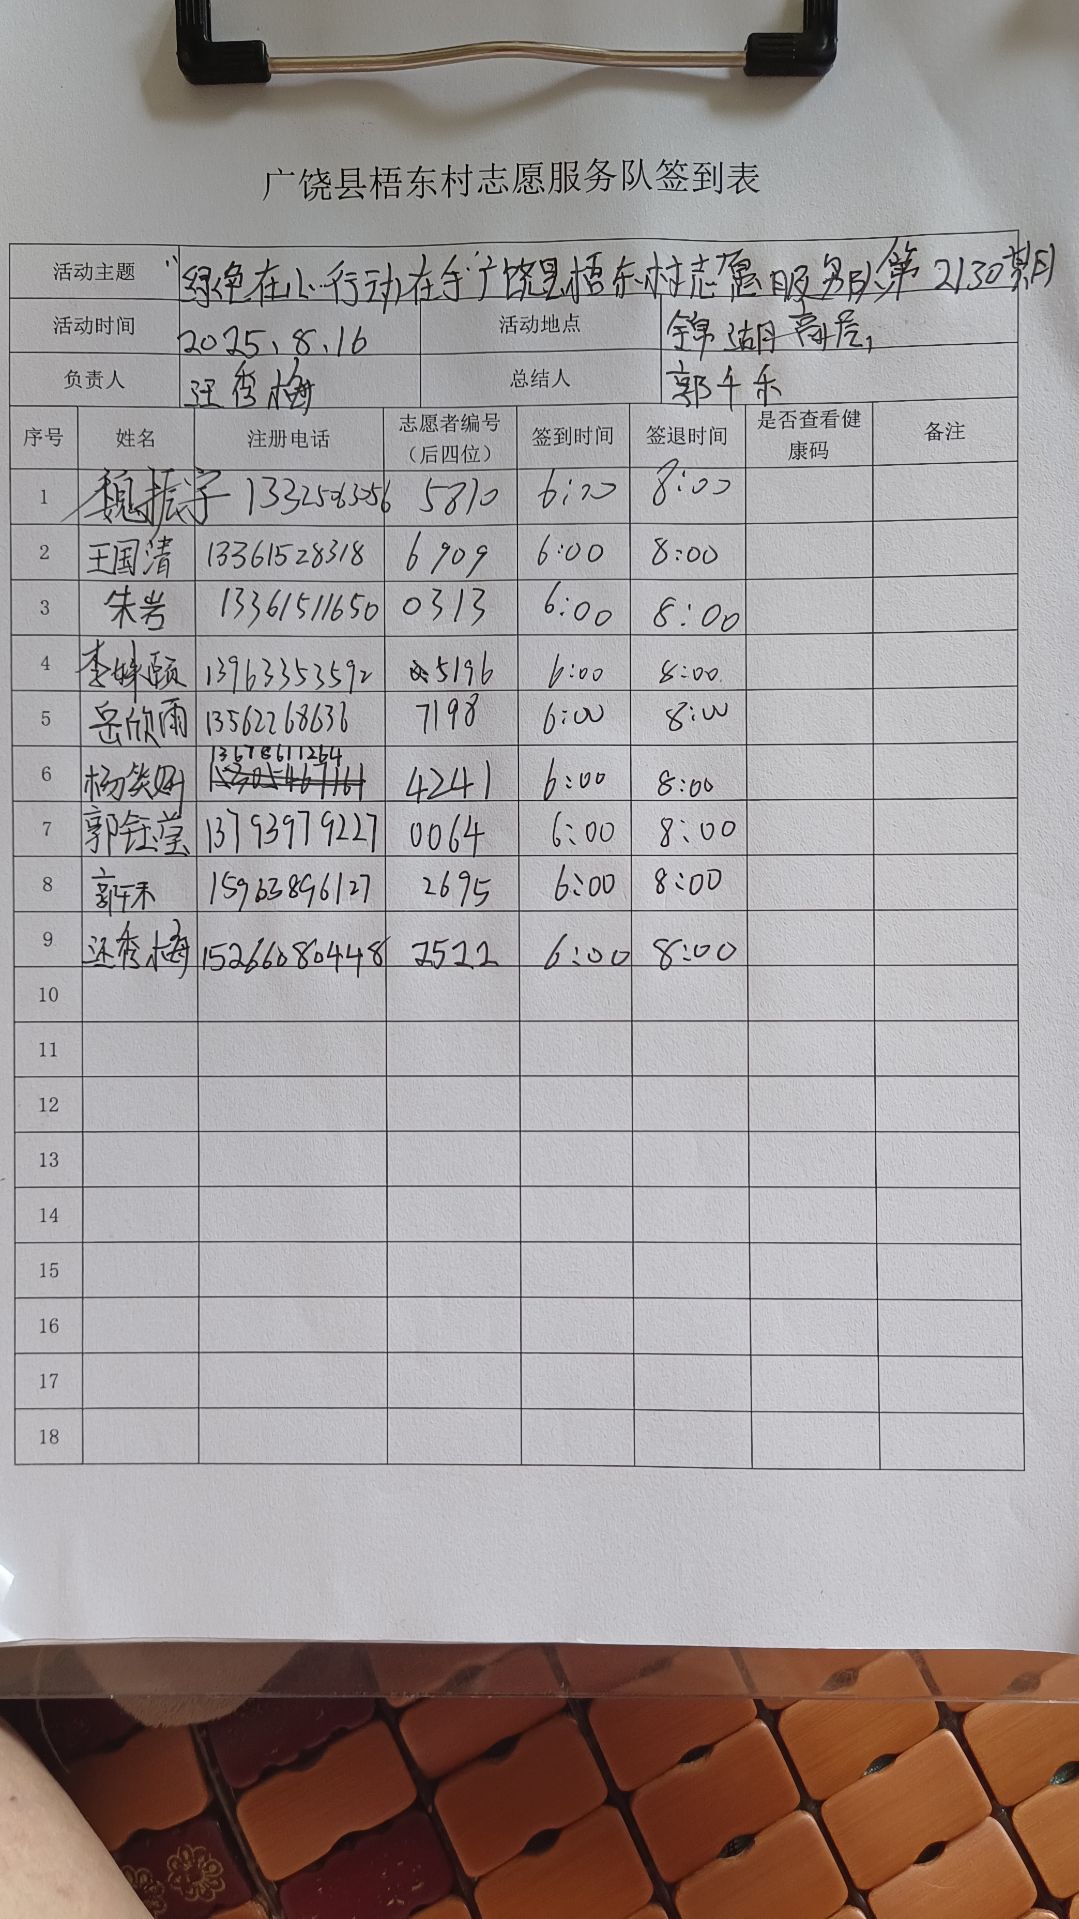 广饶县梧东村志愿服务队签到表
活动主题 "绿色在心行动在手"广饶县梧东村志愿服务队第2130期
活动时间 2025、8、16 活动地点 锦湖
负责人 汪秀梅 总结人 郭千禾
序号 姓名 注册电话 志愿者编号（后四位） 签到时间 签退时间 是否查看健康码 备注
1 魏振宇 13325063056 5810 6:00 8:00
2 王国清 13361528318 6909 6:00 8:00
3 朱岩 13361511650 0313 6:00 8:00
4 李姝颐 13963353592 5196 6:00 8:00
5 岳欣雨 13562268636 7198 6:00 8:00
6 13678611264 4241 6:00 8:00
7 郭钰莹 13793979227 0064 6:00 8:00
8 郭千禾 15963896127 2695 6:00 8:00
9 汪秀梅 15266080448 2522 6:00 8:00
10
11
12
13
14
15
16
17
18